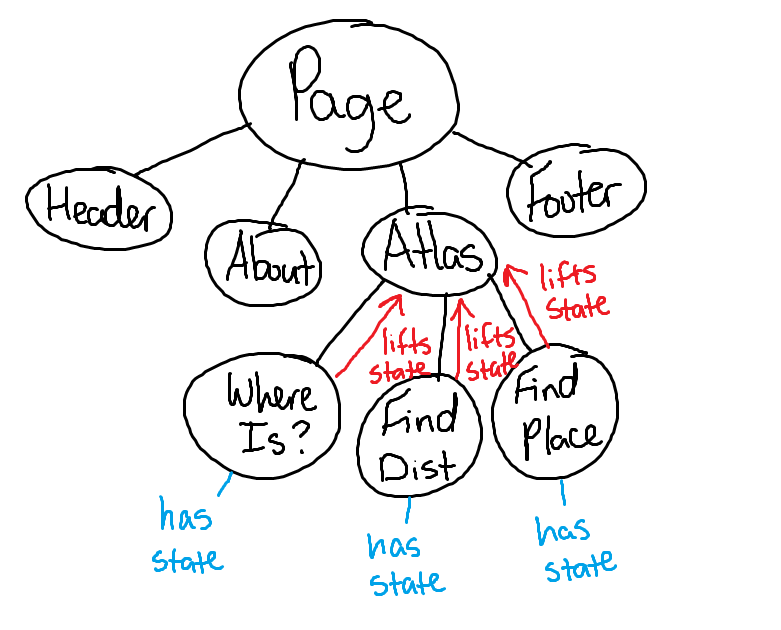 Page
Header
About
Atlas
Footer
lifts
state
lifts
state
lifts
state
Where
Is?
Find
Dist
Find
Place
has
state
has
state
has
state